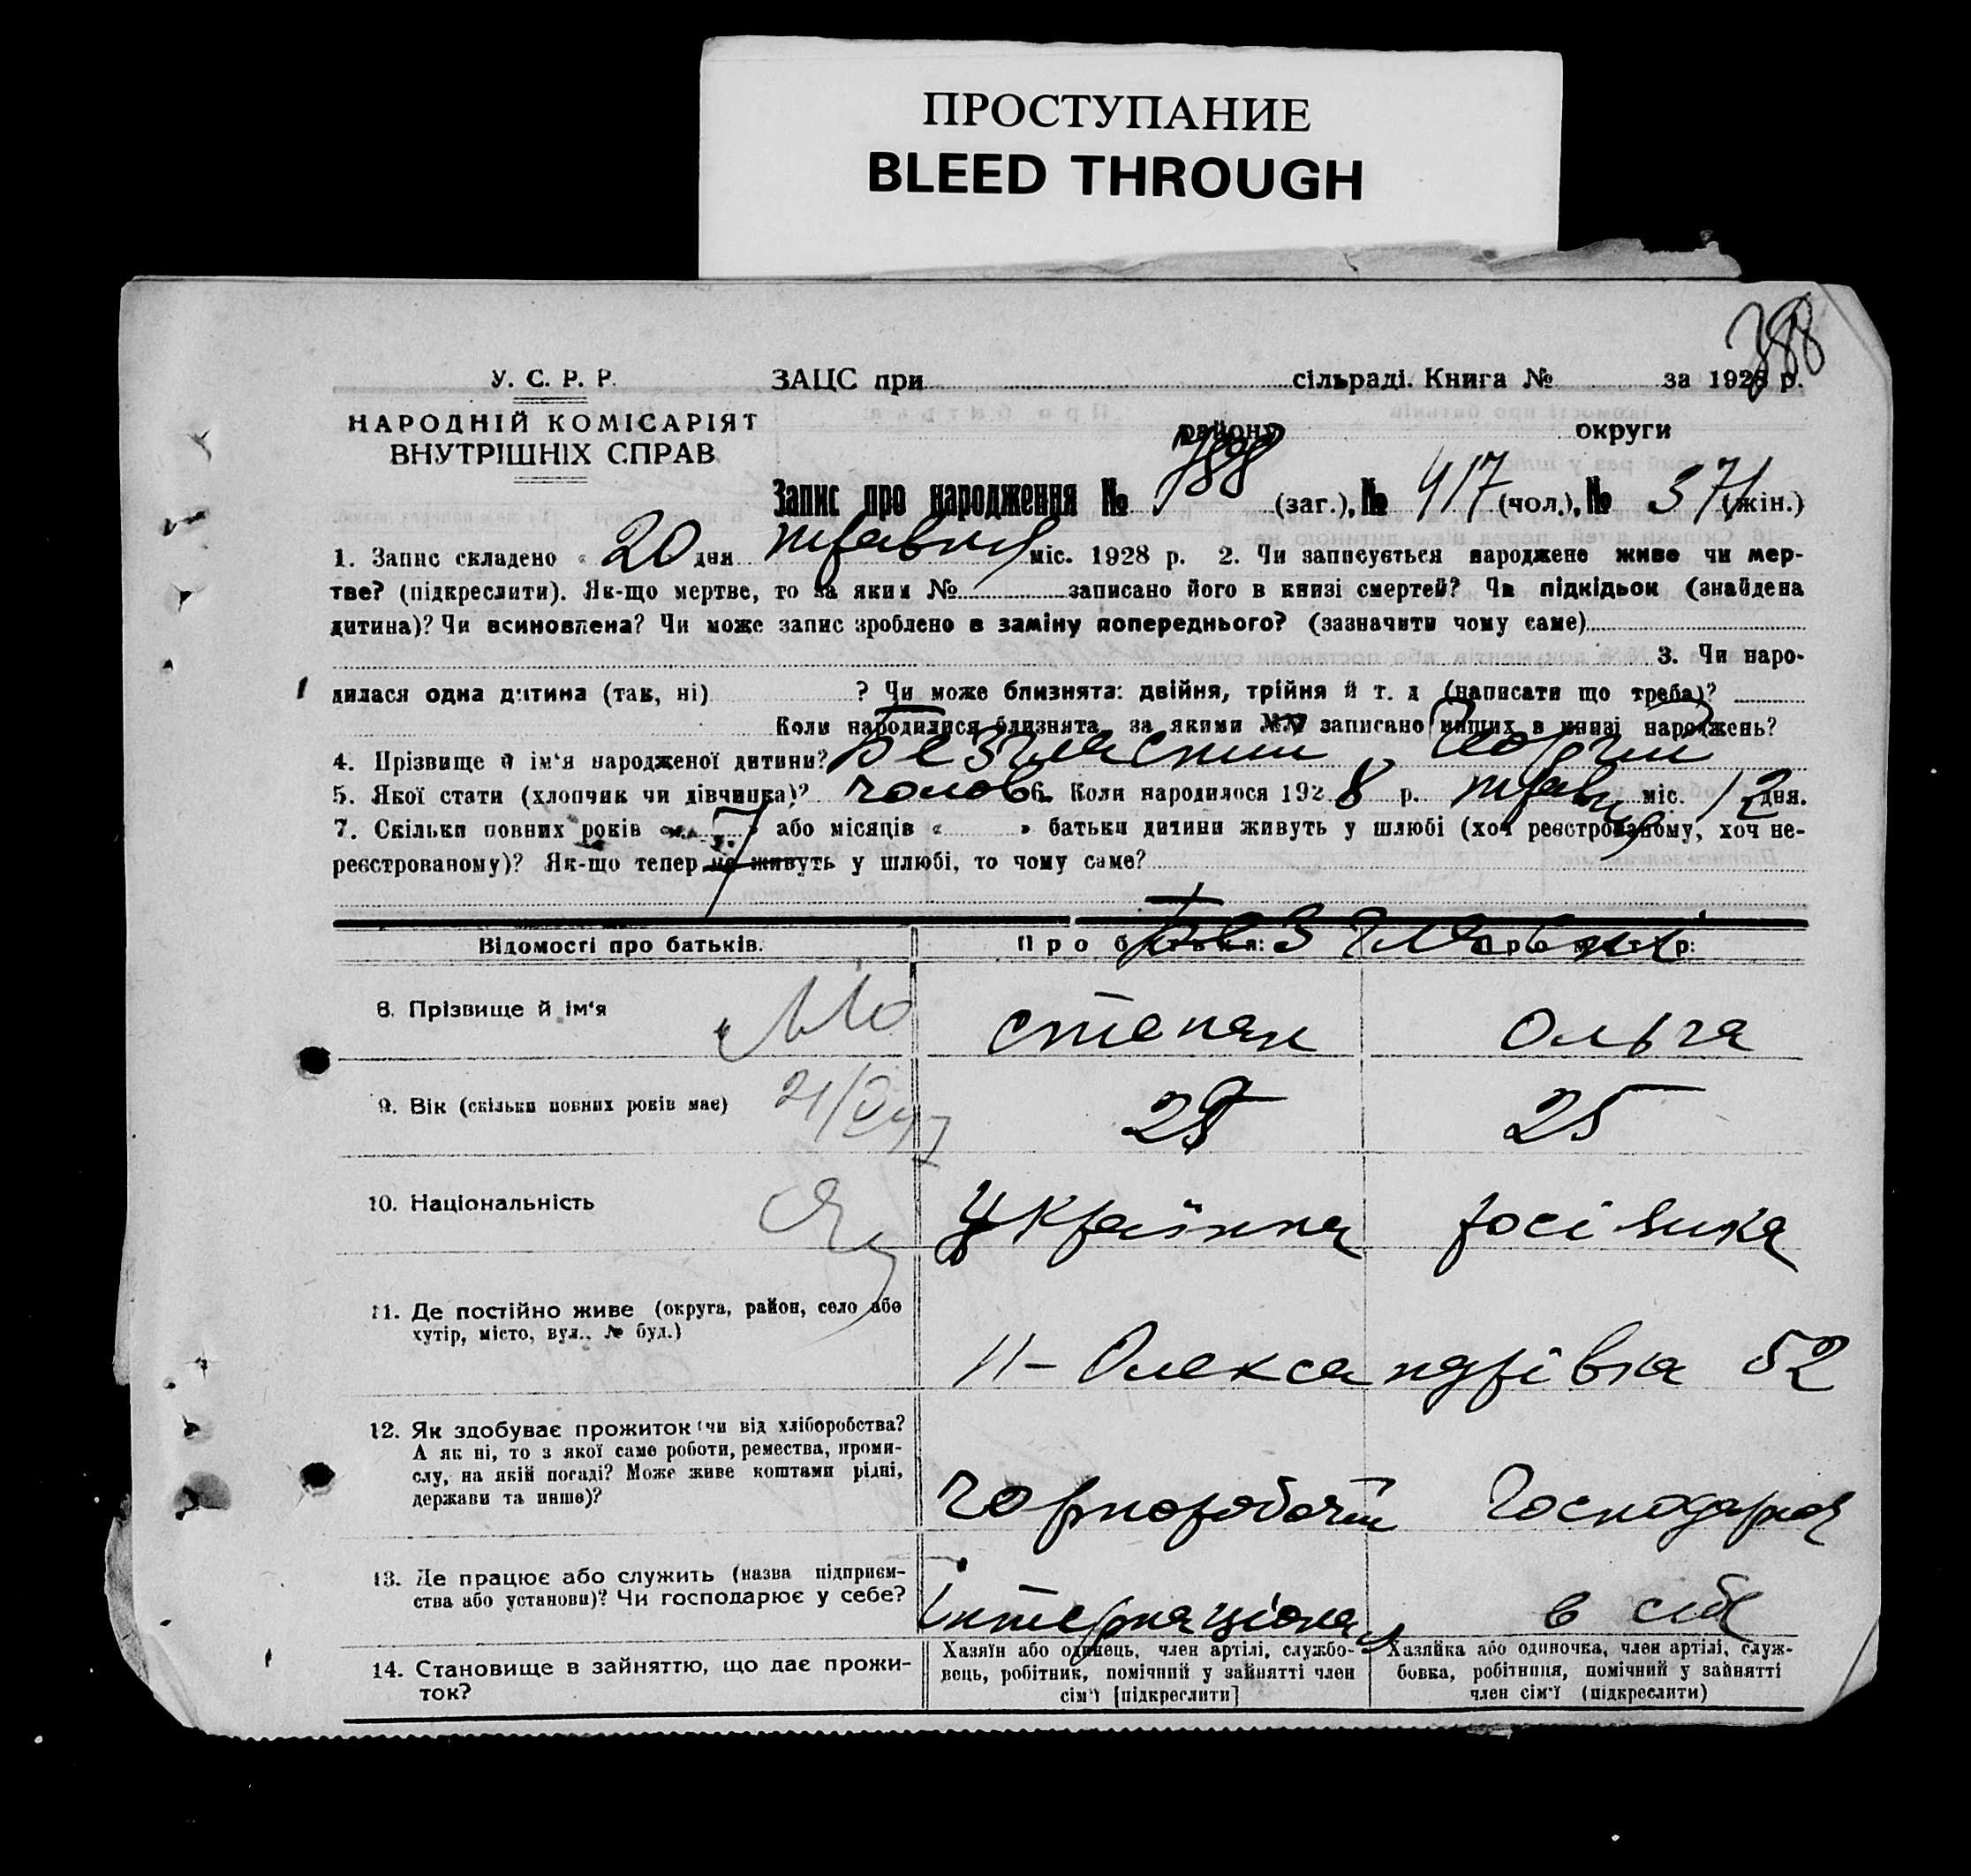 ПРОСТУПАНИЕ
BLEED THROUGH
388
У. С. Р. Р.
НАРОДНІЙ КОМІСАРІЯТ
ВНУТРІШНІХ СПРАВ
ЗАЦС при сільраді. Книга № за 1928 р.
району округи
Запис про народження № 788 (заг.), № 417 (чол.), № 371 (жін.)
1. Запис складено « 20 дня травня міс. 1928 р. 2. Чи записується народжене живе чи мер-
тве? (підкреслити). Як-що мертве, то за яким № записано його в книзі смертей? Чи підкідьок (знайдена
дитина)? Чи всиновлена? Чи може запис зроблено в заміну попереднього? (зазначити чому саме)
3. Чи наро-
дилася одна дитина (так, ні) ? Чи може близнята: двійня, трійня й т. д (написати що треба)?
Коли народилися близнята, за якими №№ записано инших в книзі народжень?
4. Прізвище й ім'я народженої дитини?
5. Якої стати (хлопчик чи дівчинка)? чолов 6. Коли народилося 1928 р. травня міс. 12 дня.
7. Скільки повних років « 7 » або місяців « » батьки дитини живуть у шлюбі (хоч реєстрованому, хоч не-
реєстрованому)? Як-що тепер не живуть у шлюбі, то чому саме?
Відомості про батьків. Про батька: Про матір:
8. Прізвище й ім'я Степан Ольга
9. Вік (скільки повних років має) 25
10. Національність Українка росіянка
11. Де постійно живе (округа, район, село або
хутір, місто, вул., № буд.)
Н-Олександрівка 52
12. Як здобуває прожиток (чи від хліборобства?
А як ні, то з якої саме роботи, ремества, проми-
слу, на якій посаді? Може живе коштами рідні,
держави та инше)?
Чорноробочий Господарює
13. Де працює або служить (назва підприєм-
ства або установи)? Чи господарює у себе?
Інтернаціонал в себе
14. Становище в зайняттю, що дає прожи-
ток?
Хазяїн або одинець, член артілі, службо-
вець, робітник, помічний у зайнятті член
сім'ї [підкреслити]
Хазяйка або одиночка, член артілі, служ-
бовка, робітниця, помічний у зайнятті
член сім'ї (підкреслити)